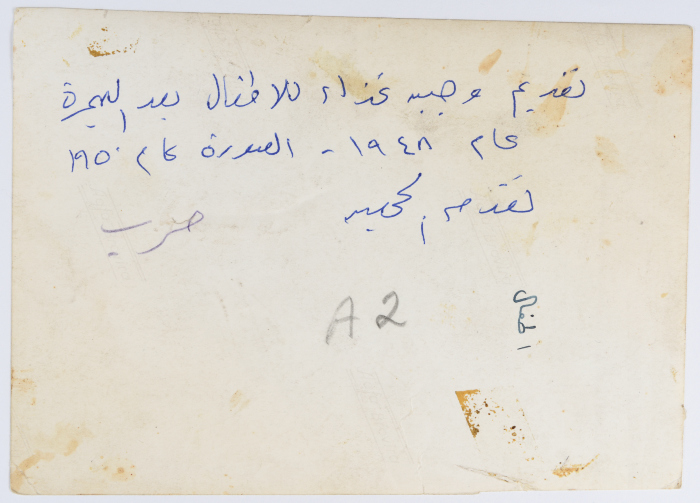 تقديم وجبه غذاء للاطفال بعد الهجرة
عام ١٩٤٨ - الصورة عام ١٩٥٠
تقدمه
حرب
A2
اطفال